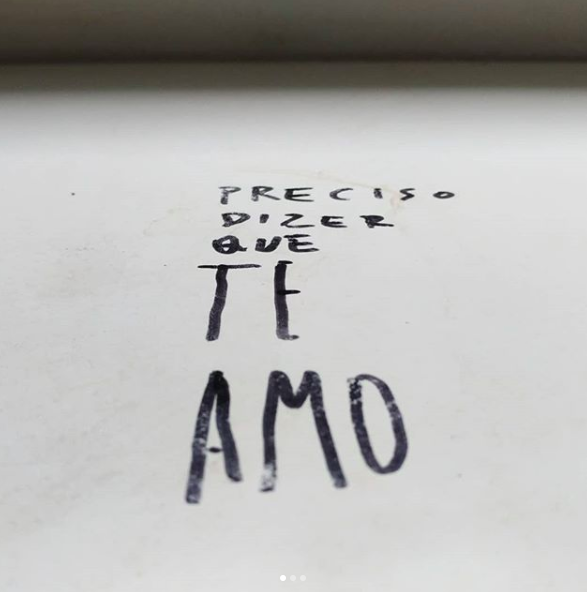 PRECISO
DIZER
QUE
TE
AMO